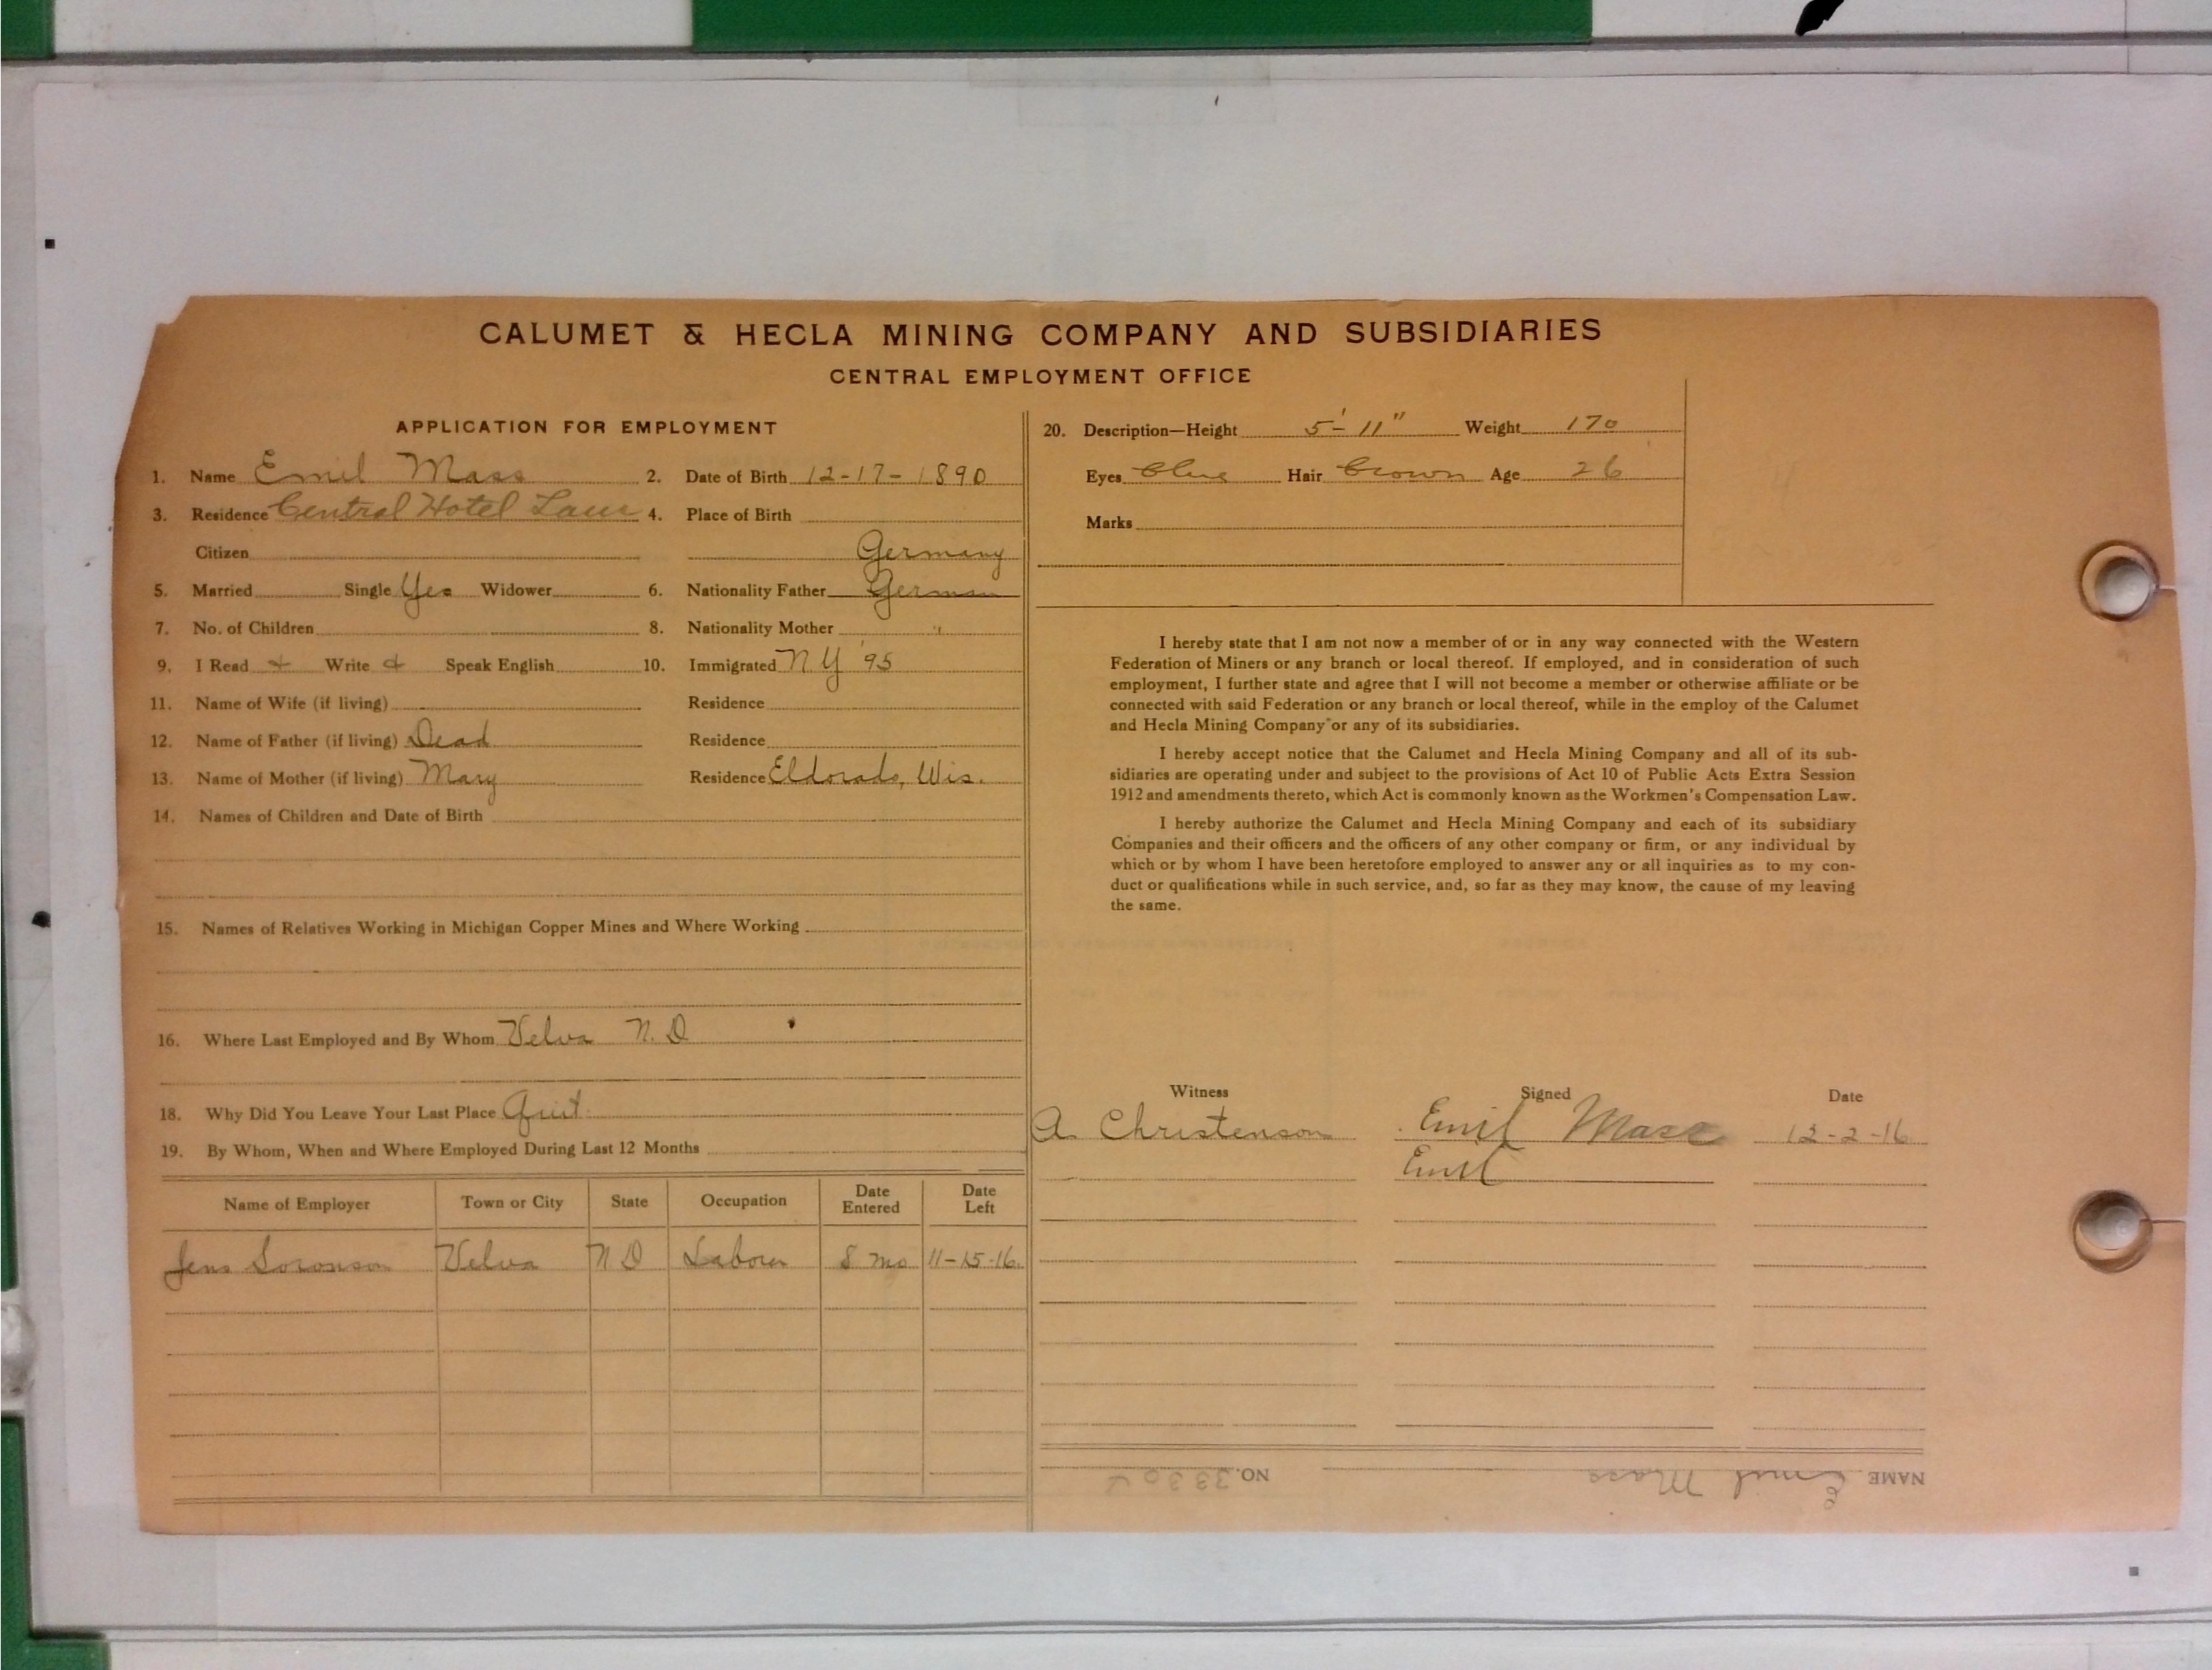 CALUMET & HECLA MINING COMPANY AND SUBSIDIARIES
CENTRAL EMPLOYMENT OFFICE
APPLICATION FOR EMPLOYMENT
1. Name Emil Mass 2. Date of Birth 12-17-1890
3. Residence Central Hotel Laur 4. Place of Birth
Citizen Germany
5. Married Single Yes Widower 6. Nationality Father German
7. No. of Children 8. Nationality Mother "
9. I Read + Write + Speak English 10. Immigrated N Y '95
11. Name of Wife (if living) Residence
12. Name of Father (if living) Dead Residence
13. Name of Mother (if living) Mary Residence Eldorado, Wis.
14. Names of Children and Date of Birth
15. Names of Relatives Working in Michigan Copper Mines and Where Working
16. Where Last Employed and By Whom Velva N. D
18. Why Did You Leave Your Last Place Quit.
19. By Whom, When and Where Employed During Last 12 Months
Name of Employer Town or City State Occupation Date Entered Date Left
Jens Soronson Velva N D Labour 8 mo 11-15-16.
20. Description—Height 5'-11" Weight 170
Eyes blue Hair brown Age 26
Marks
I hereby state that I am not now a member of or in any way connected with the Western
Federation of Miners or any branch or local thereof. If employed, and in consideration of such
employment, I further state and agree that I will not become a member or otherwise affiliate or be
connected with said Federation or any branch or local thereof, while in the employ of the Calumet
and Hecla Mining Company or any of its subsidiaries.
I hereby accept notice that the Calumet and Hecla Mining Company and all of its sub-
sidiaries are operating under and subject to the provisions of Act 10 of Public Acts Extra Session
1912 and amendments thereto, which Act is commonly known as the Workmen's Compensation Law.
I hereby authorize the Calumet and Hecla Mining Company and each of its subsidiary
Companies and their officers and the officers of any other company or firm, or any individual by
which or by whom I have been heretofore employed to answer any or all inquiries as to my con-
duct or qualifications while in such service, and, so far as they may know, the cause of my leaving
the same.
Witness Signed Date
A. Christenson Emil Mass 12-2-16
Emil
NAME Emil Mass NO.